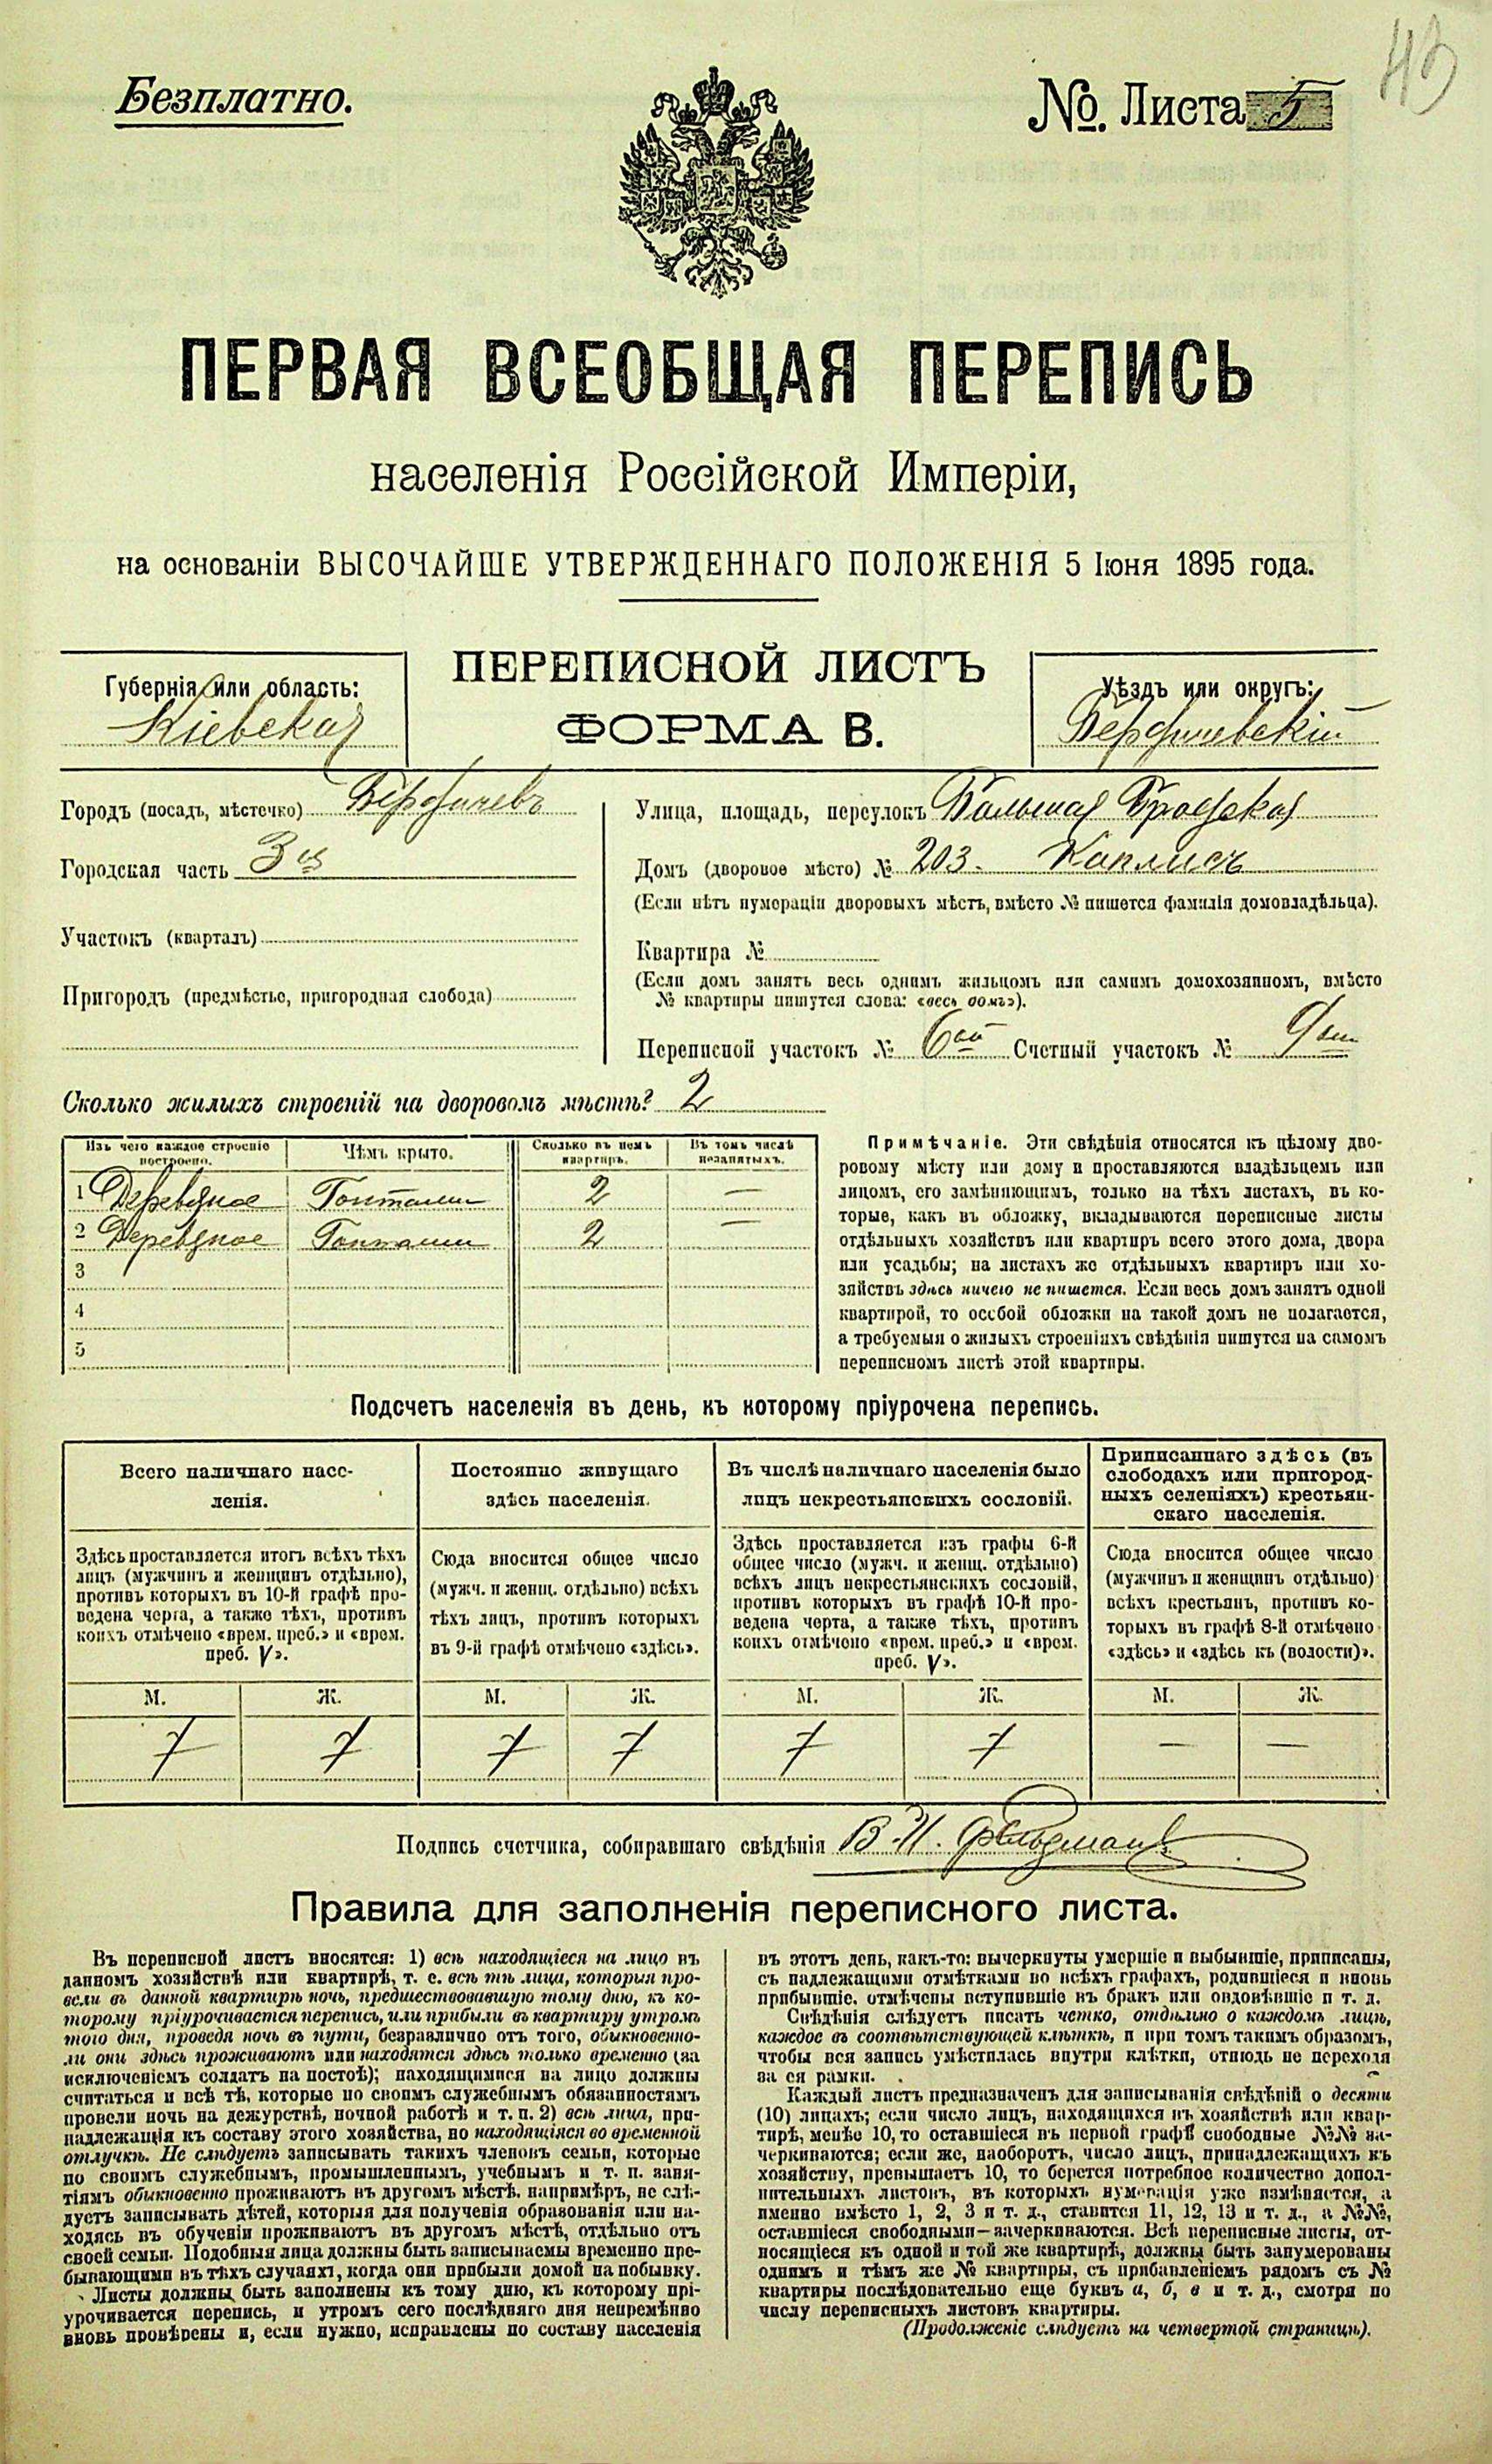 Безплатно.
№. Листа 5
43
ПЕРВАЯ ВСЕОБЩАЯ ПЕРЕПИСЬ
населенія Россійской Имперіи,
на основаніи ВЫСОЧАЙШЕ УТВЕРЖДЕННАГО ПОЛОЖЕНІЯ 5 Іюня 1895 года.
Губернія или область:
Кіевская
ПЕРЕПИСНОЙ ЛИСТЪ
ФОРМА В.
Уѣздъ или округъ:
Бердичевскій
Городъ (посадъ, мѣстечко) Бердичевъ
Городская часть 3ья
Участокъ (кварталъ)
Пригородъ (предмѣстье, пригородная слобода)
Улица, площадь, переулокъ Большая Бродская
Домъ (дворовое мѣсто) № 203.
(Если нѣтъ нумераціи дворовыхъ мѣстъ, вмѣсто № пишется фамилія домовладѣльца).
Квартира №
(Если домъ занятъ весь однимъ жильцомъ или самимъ домохозяиномъ, вмѣсто
№ квартиры пишутся слова: «весь домъ»).
Переписной участокъ № 6ой Счетный участокъ № 9ый
Сколько жилыхъ строеній на дворовомъ мѣстѣ? 2
Изъ чего каждое строеніе построено.
Чѣмъ крыто.
Сколько въ немъ квартиръ.
Въ томъ числѣ незанятыхъ.
1 Деревяное Гонтами 2 —
2 Деревяное Гонтами 2 —
3
4
5
Примѣчаніе. Эти свѣдѣнія относятся къ цѣлому дво-
ровому мѣсту или дому и проставляются владѣльцемъ или
лицомъ, его замѣняющимъ, только на тѣхъ листахъ, въ ко-
торые, какъ въ обложку, вкладываются переписные листы
отдѣльныхъ хозяйствъ или квартиръ всего этого дома, двора
или усадьбы; на листахъ же отдѣльныхъ квартиръ или хо-
зяйствъ здѣсь ничего не пишется. Если весь домъ занятъ одной
квартирой, то особой обложки на такой домъ не полагается,
а требуемыя о жилыхъ строеніяхъ свѣдѣнія пишутся на самомъ
переписномъ листѣ этой квартиры.
Подсчетъ населенія въ день, къ которому пріурочена перепись.
Всего наличнаго насе-
ленія.
Здѣсь проставляется итогъ всѣхъ тѣхъ
лицъ (мужчинъ и женщинъ отдѣльно),
противъ которыхъ въ 10-й графѣ про-
ведена черта, а также тѣхъ, противъ
коихъ отмѣчено «врем. преб.» и «врем.
преб. V».
Постоянно живущаго
здѣсь населенія.
Сюда вносится общее число
(мужч. и женщ. отдѣльно) всѣхъ
тѣхъ лицъ, противъ которыхъ
въ 9-й графѣ отмѣчено «здѣсь».
Въ числѣ наличнаго населенія было
лицъ некрестьянскихъ сословій.
Здѣсь проставляется изъ графы 6-й
общее число (мужч. и женщ. отдѣльно)
всѣхъ лицъ некрестьянскихъ сословій,
противъ которыхъ въ графѣ 10-й про-
ведена черта, а также тѣхъ, противъ
коихъ отмѣчено «врем. преб.» и «врем.
преб. V».
Приписаннаго здѣсь (въ
слободахъ или пригород-
ныхъ селеніяхъ) крестьян-
скаго населенія.
Сюда вносится общее число
(мужчинъ и женщинъ отдѣльно)
всѣхъ крестьянъ, противъ ко-
торыхъ въ графѣ 8-й отмѣчено
«здѣсь» и «здѣсь къ (волости)».
М. Ж. М. Ж. М. Ж. М. Ж.
7 7 7 7 7 7 — —
Подпись счетчика, собиравшаго свѣдѣнія В. И. Фельдман
Правила для заполненія переписного листа.
Въ переписной листъ вносятся: 1) всѣ находящіеся на лицо въ
данномъ хозяйствѣ или квартирѣ, т. е. всѣ тѣ лица, которыя про-
вели въ данной квартирѣ ночь, предшествовавшую тому дню, къ ко-
торому пріурочивается перепись, или прибыли въ квартиру утромъ
того дня, проведя ночь въ пути, безразлично отъ того, обыкновенно-
ли они здѣсь проживаютъ или находятся здѣсь только временно (за
исключеніемъ солдатъ на постоѣ); находящимися на лицо должны
считаться и всѣ тѣ, которые по своимъ служебнымъ обязанностямъ
провели ночь на дежурствѣ, ночной работѣ и т. п. 2) всѣ лица, при-
надлежащія къ составу этого хозяйства, но находящіяся во временной
отлучкѣ. Не слѣдуетъ записывать такихъ членовъ семьи, которые
по своимъ служебнымъ, промышленнымъ, учебнымъ и т. п. заня-
тіямъ обыкновенно проживаютъ въ другомъ мѣстѣ, напримѣръ, не слѣ-
дуетъ записывать дѣтей, которыя для полученія образованія или на-
ходясь въ обученіи проживаютъ въ другомъ мѣстѣ, отдѣльно отъ
своей семьи. Подобныя лица должны быть записываемы временно пре-
бывающими въ тѣхъ случаяхъ, когда они прибыли домой на побывку.
Листы должны быть заполнены къ тому дню, къ которому прі-
урочивается перепись, и утромъ сего послѣдняго дня непремѣнно
вновь провѣрены и, если нужно, исправлены по составу населенія
въ этотъ день, какъ-то: вычеркнуты умершіе и выбывшіе, приписаны,
съ надлежащими отмѣтками во всѣхъ графахъ, родившіеся и вновь
прибывшіе, отмѣчены вступившіе въ бракъ или овдовѣвшіе и т. д.
Свѣдѣнія слѣдуетъ писать четко, отдѣльно о каждомъ лицѣ,
каждое въ соотвѣтствующей клѣткѣ, и при томъ такимъ образомъ,
чтобы вся запись умѣстилась внутри клѣтки, отнюдь не переходя
за ея рамки.
Каждый листъ предназначенъ для записыванія свѣдѣній о десяти
(10) лицахъ; если число лицъ, находящихся въ хозяйствѣ или квар-
тирѣ, менѣе 10, то оставшіеся въ первой графѣ свободные №№ за-
черкиваются; если же, наоборотъ, число лицъ, принадлежащихъ къ
хозяйству, превышаетъ 10, то берется потребное количество допол-
нительныхъ листовъ, въ которыхъ нумерація уже измѣняется, а
именно вмѣсто 1, 2, 3 и т. д., ставится 11, 12, 13 и т. д., а №№,
оставшіеся свободными—зачеркиваются. Всѣ переписные листы, от-
носящіеся къ одной и той же квартирѣ, должны быть занумерованы
однимъ и тѣмъ же № квартиры, съ прибавленіемъ рядомъ съ №
квартиры послѣдовательно еще буквъ а, б, в и т. д., смотря по
числу переписныхъ листовъ квартиры.
(Продолженіе слѣдуетъ на четвертой страницѣ).